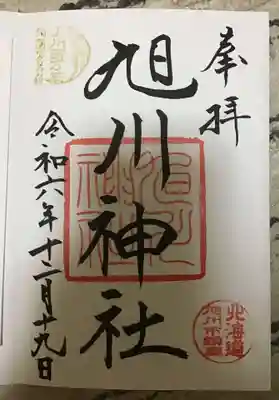 奉拝
旭川神社
旭川神社
令和六年十二月十九日
北海道
旭川市鎮座